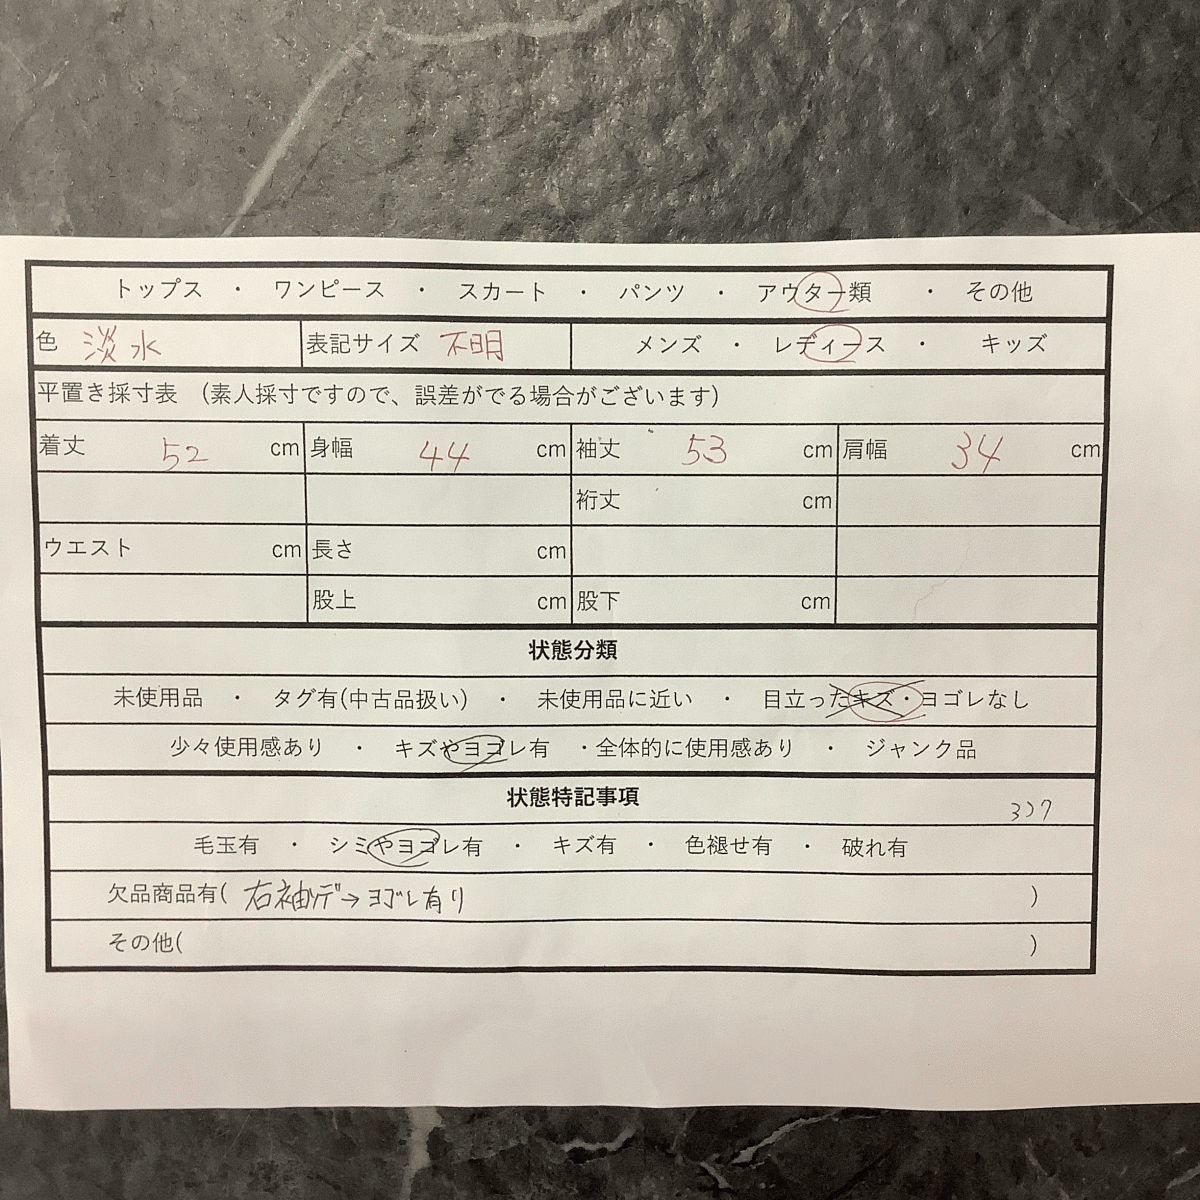 トップス ・ ワンピース ・ スカート ・ パンツ ・ アウター類 ・ その他
色 淡水 表記サイズ 不明 メンズ ・ レディース ・ キッズ
平置き採寸表 (素人採寸ですので、誤差がでる場合がございます)
着丈 52 cm 身幅 44 cm 袖丈 53 cm 肩幅 34 cm
裄丈 cm
ウエスト cm 長さ cm
股上 cm 股下 cm
状態分類
未使用品 ・ タグ有(中古品扱い) ・ 未使用品に近い ・ 目立ったキズ・ヨゴレなし
少々使用感あり ・ キズやヨゴレ有 ・全体的に使用感あり ・ ジャンク品
状態特記事項
毛玉有 ・ シミやヨゴレ有 ・ キズ有 ・ 色褪せ有 ・ 破れ有
欠品商品有( 右袖ソデ→ヨゴレ有り )
その他( )